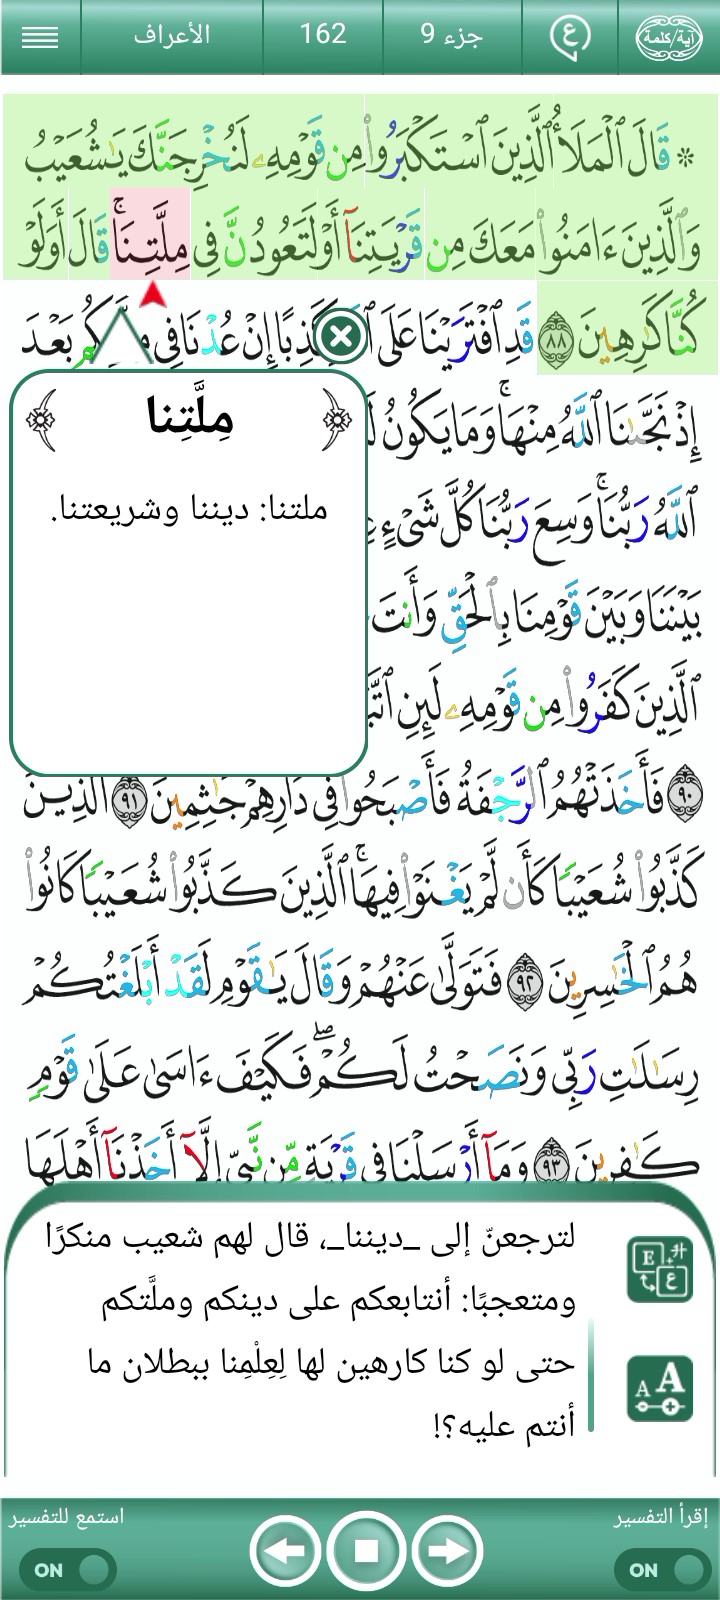 آية/كلمة
ع
جزء 9
162
الأعراف
۞ قَالَ ٱلْمَلَأُ ٱلَّذِينَ ٱسْتَكْبَرُوا۟ مِن قَوْمِهِۦ لَنُخْرِجَنَّكَ يَـٰشُعَيْبُ
وَٱلَّذِينَ ءَامَنُوا۟ مَعَكَ مِن قَرْيَتِنَآ أَوْ لَتَعُودُنَّ فِى مِلَّتِنَا ۚ قَالَ أَوَلَوْ
كُنَّا كَـٰرِهِينَ ٨٨ قَدِ ٱفْتَرَيْنَا عَلَى كَذِبًا إِنْ عُدْنَا فِى بَعْدَ
إِذْ نَجَّىٰنَا ٱللَّهُ مِنْهَا ۚ وَمَا يَكُونُ
ٱللَّهُ رَبُّنَا ۚ وَسِعَ رَبُّنَا كُلَّ شَىْءٍ
بَيْنَنَا وَبَيْنَ قَوْمِنَا بِٱلْحَقِّ وَأَنتَ
ٱلَّذِينَ كَفَرُوا۟ مِن قَوْمِهِۦ لَئِنِ
مِلَّتِنا
ملتنا: ديننا وشريعتنا.
٩٠ فَأَخَذَتْهُمُ ٱلرَّجْفَةُ فَأَصْبَحُوا۟ فِى دَارِهِمْ جَـٰثِمِينَ ٩١ ٱلَّذِينَ
كَذَّبُوا۟ شُعَيْبًا كَأَن لَّمْ يَغْنَوْا۟ فِيهَا ۚ ٱلَّذِينَ كَذَّبُوا۟ شُعَيْبًا كَانُوا۟
هُمُ ٱلْخَـٰسِرِينَ ٩٢ فَتَوَلَّىٰ عَنْهُمْ وَقَالَ يَـٰقَوْمِ لَقَدْ أَبْلَغْتُكُمْ
رِسَـٰلَـٰتِ رَبِّى وَنَصَحْتُ لَكُمْ ۖ فَكَيْفَ ءَاسَىٰ عَلَىٰ قَوْمٍ
كَـٰفِرِينَ ٩٣ وَمَآ أَرْسَلْنَا فِى قَرْيَةٍ مِّن نَّبِىٍّ إِلَّآ أَخَذْنَآ أَهْلَهَا
لترجعنّ إلى _ديننا_، قال لهم شعيب منكرًا
ومتعجبًا: أنتابعكم على دينكم وملَّتكم
حتى لو كنا كارهين لها لِعِلْمِنا ببطلان ما
أنتم عليه؟!
إقرأ التفسير
استمع للتفسير
ON
ON